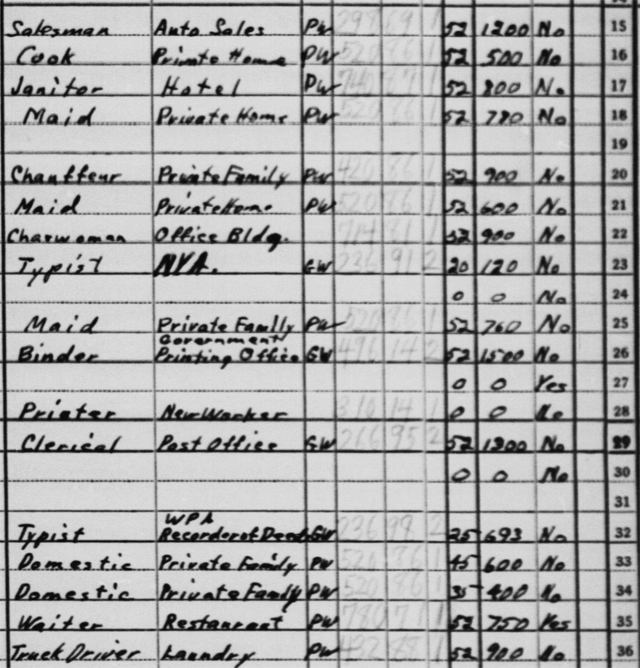 Salesman Auto Sales PW 298 69 1 52 1200 No 15
Cook Private Home PW 520 86 1 52 500 No 16
Janitor Hotel PW 740 87 1 52 800 No 17
Maid Private Home PW 520 86 1 52 780 No 18
19
Chauffeur Private Family PW 420 86 1 52 900 No 20
Maid Private Home PW 520 86 1 52 600 No 21
Charwoman Office Bldg. 81 1 52 900 No 22
Typist NYA. GW 236 91 2 20 120 No 23
0 0 No 24
Maid Private Family PW 520 86 1 52 760 No 25
Government
Binder Printing Office GW 496 14 2 52 1500 No 26
0 0 Yes 27
Printer New Worker 310 14 1 0 0 No 28
Clerical Post Office GW 266 95 2 52 1800 No 29
0 0 No 30
31
WPA
Typist Recorder of Deeds GW 236 98 2 25 693 No 32
Domestic Private Family PW 520 86 1 45 600 No 33
Domestic Private Family PW 520 86 1 35 400 No 34
Waiter Restaurant PW 780 7 1 52 750 Yes 35
Truck Driver Laundry PW 432 88 1 52 900 No 36